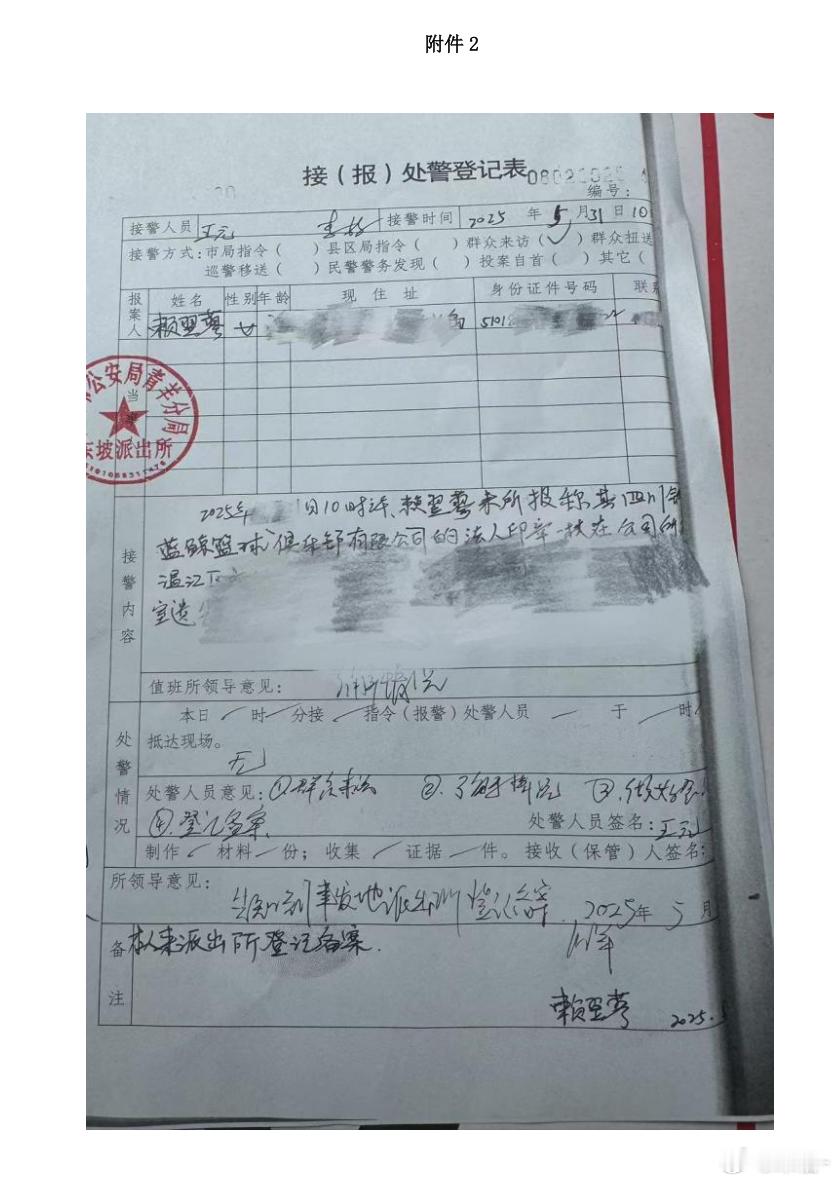 附件 2
接（报）处警登记表
编号：
接警人员 王元 接警时间 2025 年 5 月 31 日 10
接警方式：市局指令（ ）县区局指令（ ）群众来访（✓）群众扭送
巡警移送（ ）民警警务发现（ ）投案自首（ ）其它（
报案人 姓名 性别 年龄 现住址 身份证件号码 联
赖翌 女 5101
公安局青羊分局
东坡派出所
当
接警内容
2025年 日10时许，赖翌 来所报称其四川
蓝鲸篮球俱乐部有限公司的法人印章一枚在公司所
温江
室遗
值班所领导意见：
处警情况
本日 时 分接 指令（报警）处警人员 于 时
抵达现场。
无
处警人员意见：①群众来访 ②.了解情况 ③.做好
④.登记备案 处警人员签名：王元
制作 材料 份；收集 证据 件。接收（保管）人签名：
所领导意见：
到事发地派出所登记备案 2025年5月
备注 本人来派出所登记备案.
赖翌 2025.5